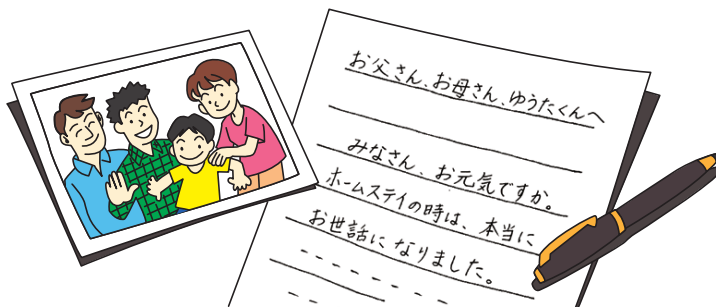 お父さん、お母さん、ゆうたくんへ
みなさん、お元気ですか。
ホームステイの時は、本当に
お世話になりました。